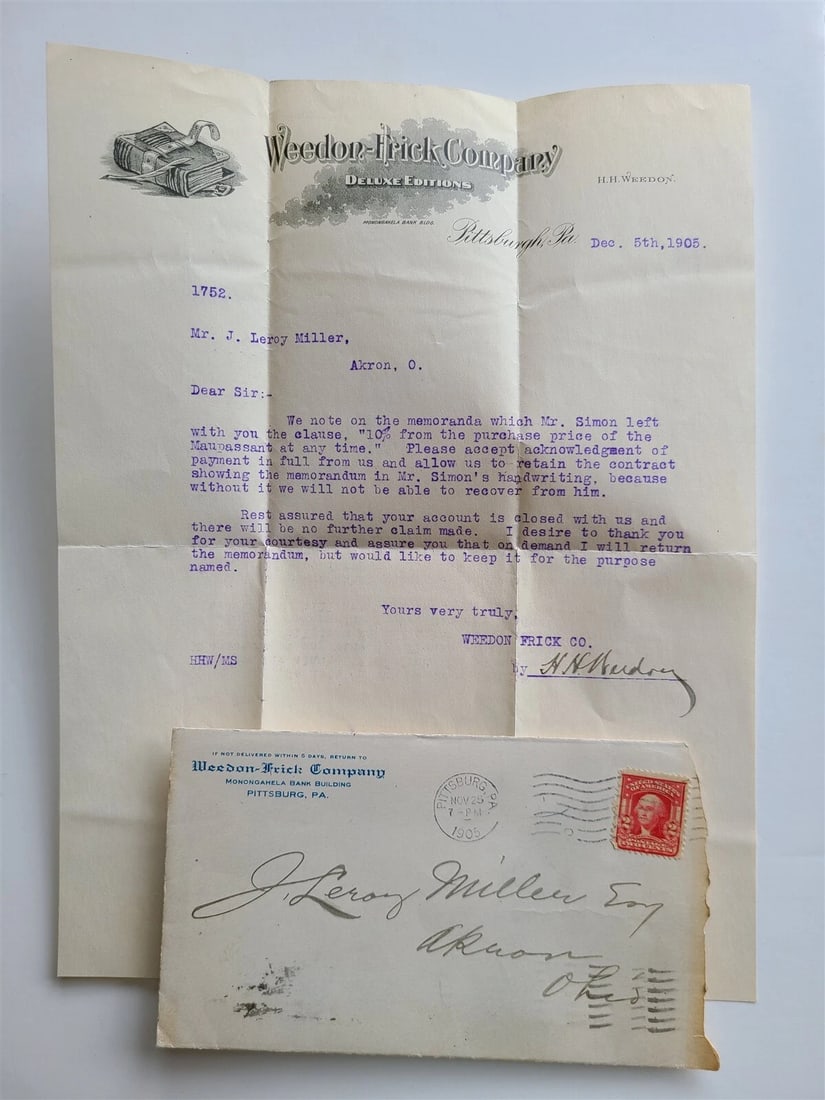 Weedon-Frick Company
DELUXE EDITIONS
H.H. WEEDON.
MONONGAHELA BANK BLDG.
Pittsburgh, Pa. Dec. 5th, 1905.
1752.
Mr. J. Leroy Miller,
Akron, O.
Dear Sir:-
We note on the memoranda which Mr. Simon left
with you the clause, "10% from the purchase price of the
Maupassant at any time."  Please accept acknowledgment of
payment in full from us and allow us to retain the contract
showing the memorandum in Mr. Simon's handwriting, because
without it we will not be able to recover from him.
Rest assured that your account is closed with us and
there will be no further claim made.  I desire to thank you
for your courtesy and assure you that on demand I will return
the memorandum, but would like to keep it for the purpose
named.
Yours very truly,
WEEDON FRICK CO.
HHW/MS
by H H Weedon
IF NOT DELIVERED WITHIN 5 DAYS, RETURN TO
Weedon-Frick Company
MONONGAHELA BANK BUILDING
PITTSBURG, PA.
PITTSBURG, PA
NOV 25
7-PM
1905
UNITED STATES
OF AMERICA
2 2
POSTAGE
TWO CENTS
J. Leroy Miller Esq
Akron
Ohio